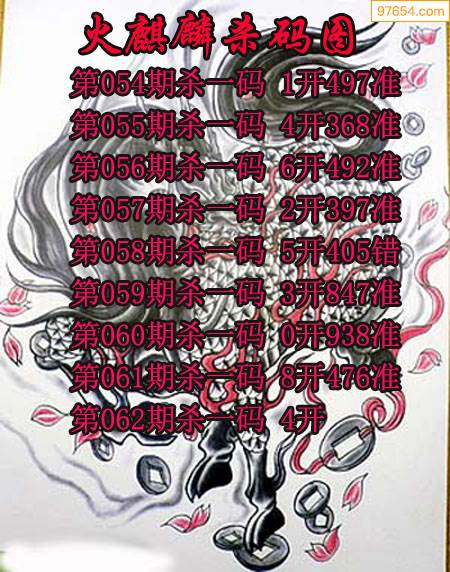 97654.com
火麒麟杀码图
第054期杀一码 1开497准
第055期杀一码 4开368准
第056期杀一码 6开492准
第057期杀一码 2开397准
第058期杀一码 5开405错
第059期杀一码 3开847准
第060期杀一码 0开938准
第061期杀一码 8开476准
第062期杀一码 4开